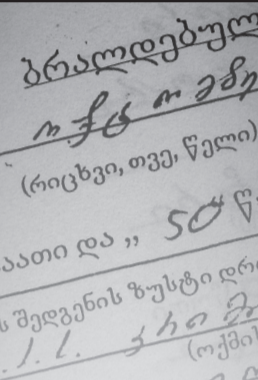 ბრალდებულ
ოქტომბე
(რიცხვი, თვე, წელი)
აათი და „ 50 წ
ს შედგენის ზუსტი დრო
(ოქმის